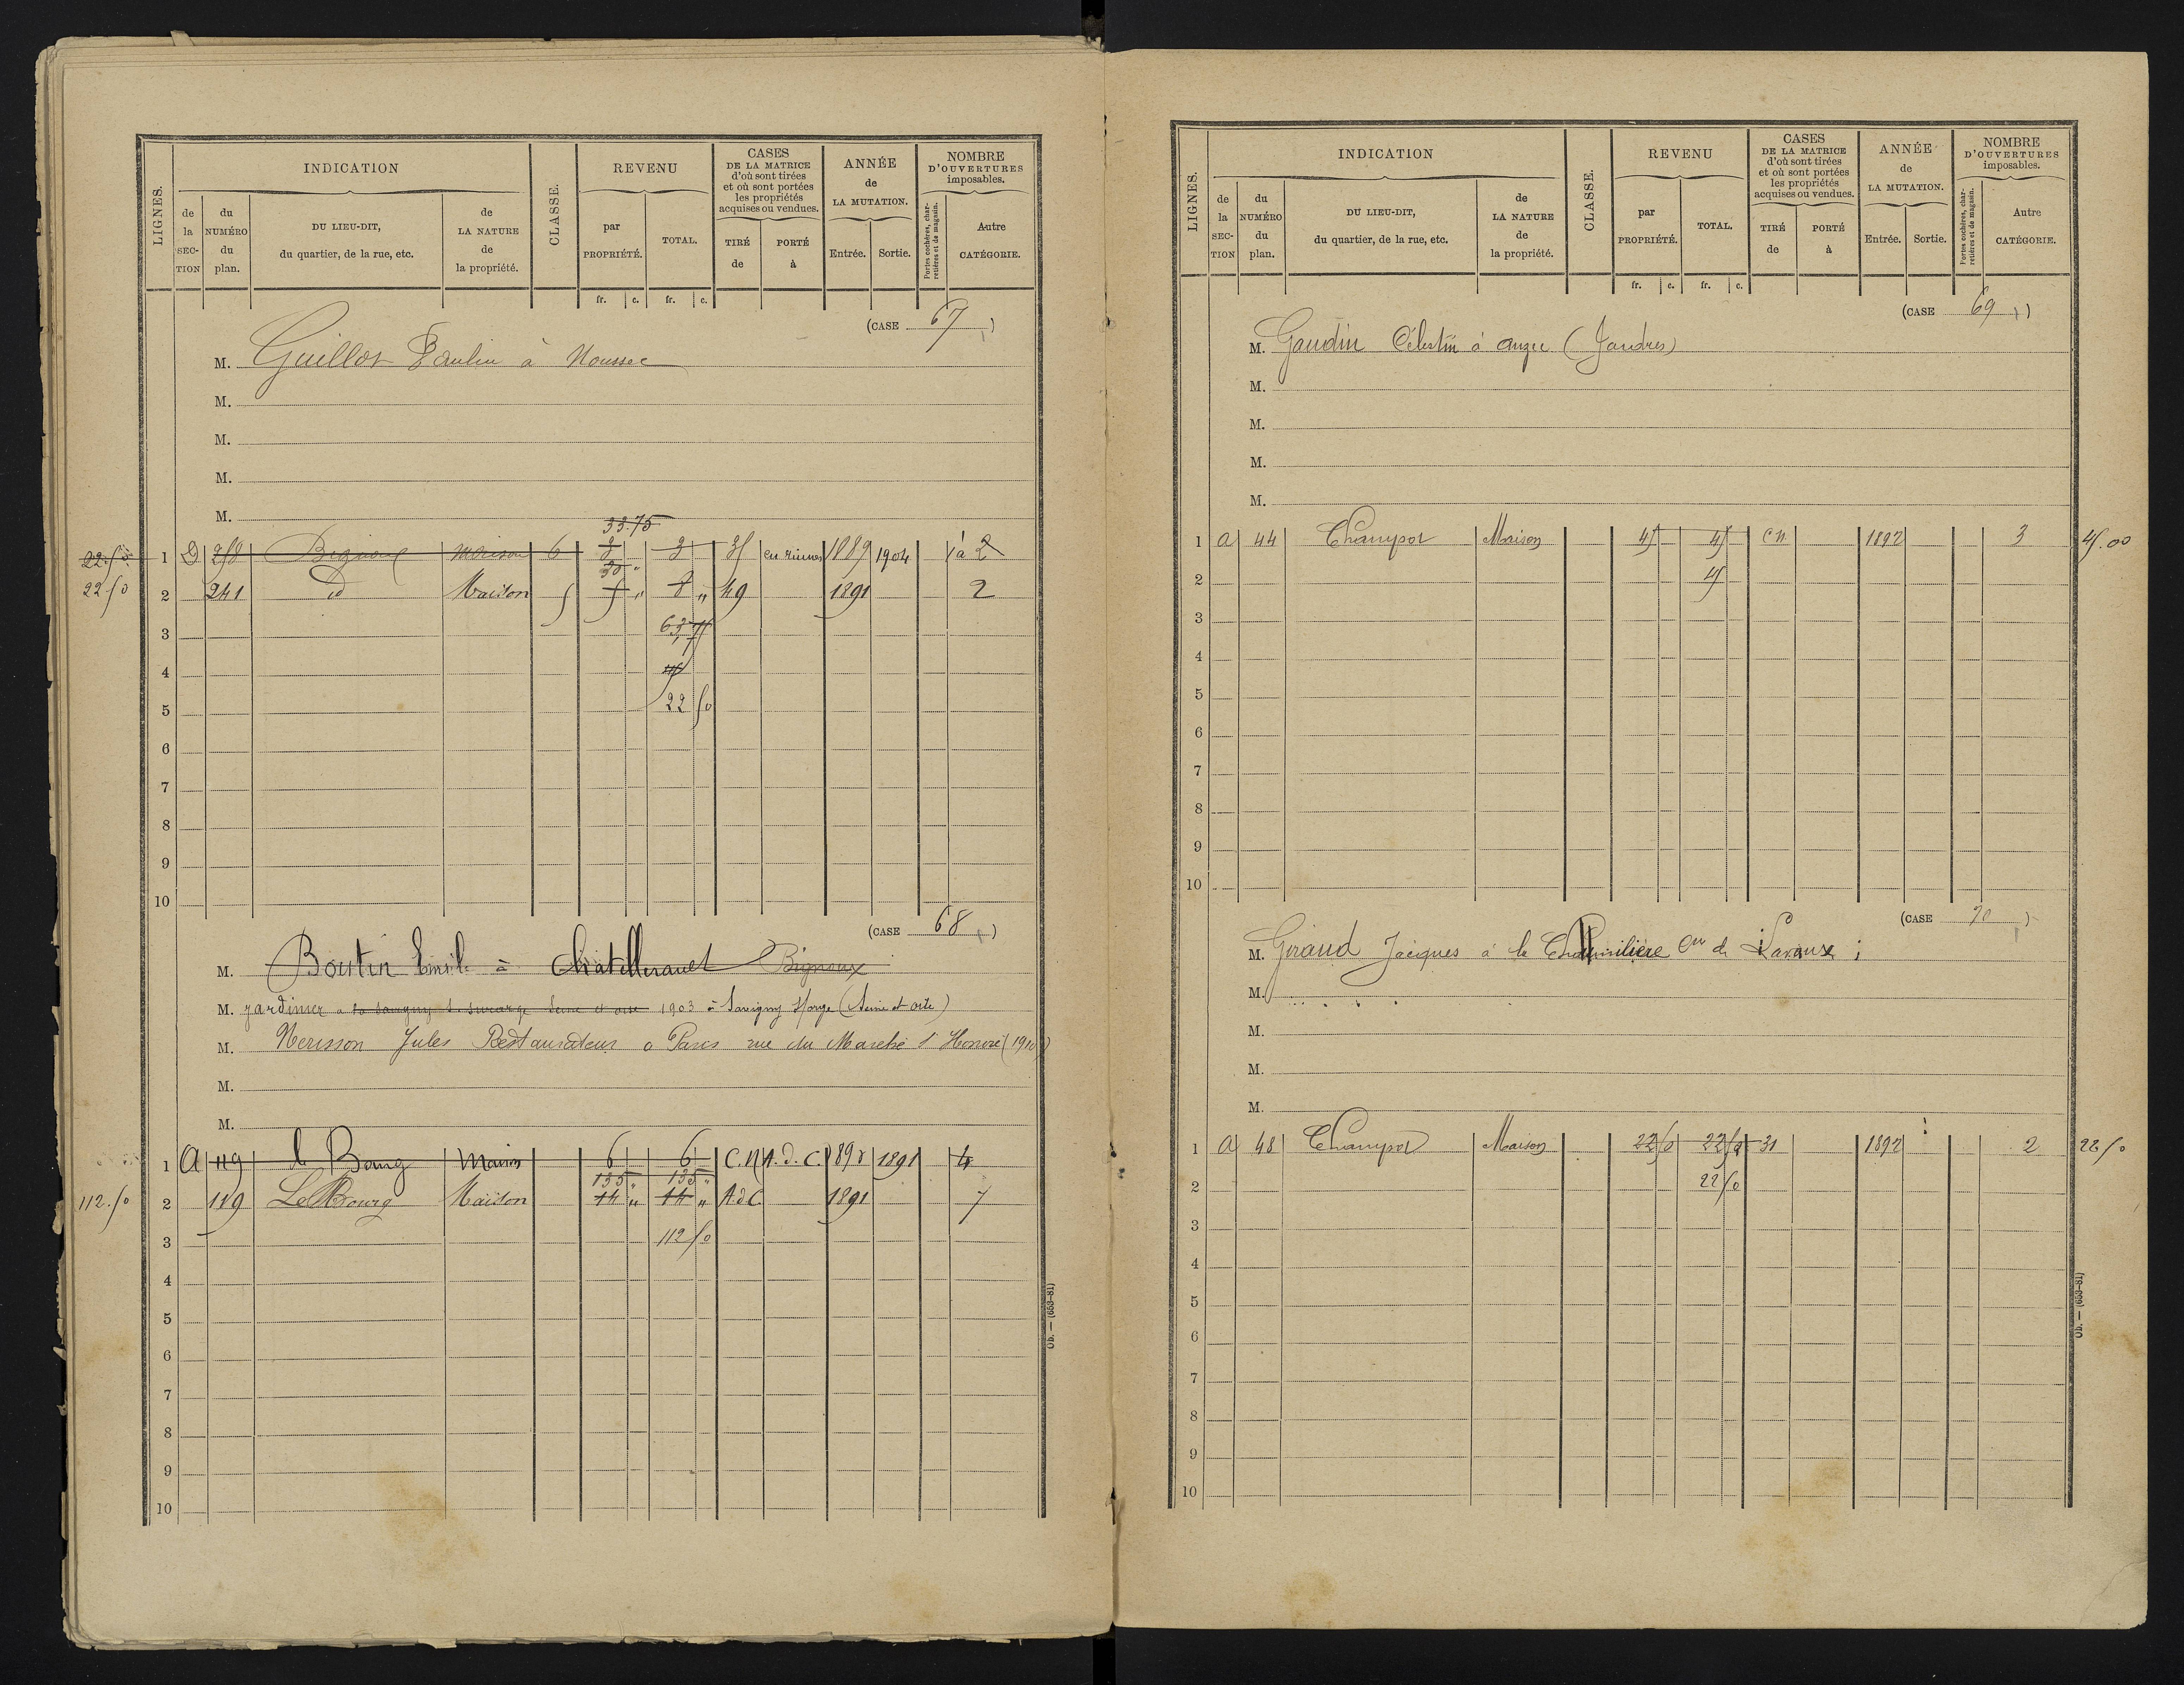 LIGNES.
INDICATION
de la SECTION
du NUMÉRO du plan.
DU LIEU-DIT, du quartier, de la rue, etc.
de LA NATURE de la propriété.
CLASSE.
REVENU
par PROPRIÉTÉ.
TOTAL.
fr. c. fr. c.
CASES DE LA MATRICE d'où sont tirées et où sont portées les propriétés acquises ou vendues.
TIRÉ de
PORTÉ à
ANNÉE de LA MUTATION.
Entrée. Sortie.
NOMBRE D'OUVERTURES imposables.
Portes cochères, charretières et de magasin.
Autre CATÉGORIE.
(CASE 67)
M. Guillot Paulin à
M.
M.
M.
M.
33.75
22.50 1 D 258 Bignoux maison 6 3 3 35 en ruines 1889 1904 2
30 "
22.50 2 241 id Maison 5 " 8 " 49 1891 2
3 63,75
4 45
5 22 50
6
7
8
9
10
(CASE 68)
M. Boutin Emile à Châtellerault Bignoux
M. jardinier a 1903 à Savigny S/orge (Seine et oise)
M. Nerisson Jules Restaurateur a Paris rue du Marché St Honoré (1910)
M.
M.
1 A 119 le Bourg maison 6 6 C.N A.d.C. 1891 4
135 " 135 "
112.50 2 119 Le Bourg Maison 14 " 14 " A.d.C. 1891 7
3 112 50
4
5
6
7
8
9
10
Ob. — (653-81)
LIGNES.
INDICATION
de la SECTION
du NUMÉRO du plan.
DU LIEU-DIT, du quartier, de la rue, etc.
de LA NATURE de la propriété.
CLASSE.
REVENU
par PROPRIÉTÉ.
TOTAL.
fr. c. fr. c.
CASES DE LA MATRICE d'où sont tirées et où sont portées les propriétés acquises ou vendues.
TIRÉ de
PORTÉ à
ANNÉE de LA MUTATION.
Entrée. Sortie.
NOMBRE D'OUVERTURES imposables.
Portes cochères, charretières et de magasin.
Autre CATÉGORIE.
(CASE 69)
M. Gaudin Célestin à
M.
M.
M.
M.
1 A 44 Champot Maison 45 45 CN 1892 3 45.00
2 45
3
4
5
6
7
8
9
10
(CASE 70)
M. Giraud Jacques à la Cne de Lavoux
M.
M.
M.
M.
1 A 48 Champot Maison 22 50 22 50 31 1892 2 22 50
2 22 50
3
4
5
6
7
8
9
10
Ob. — (653-81)